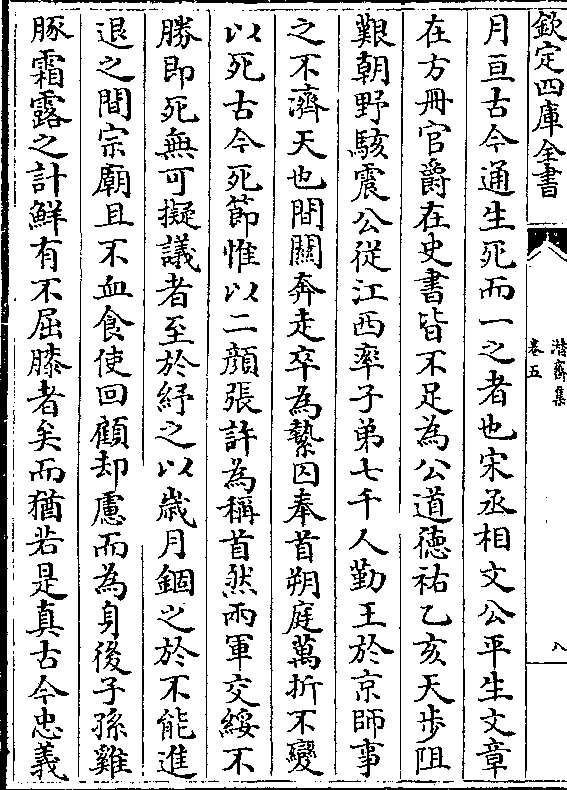 欽定四庫全書
潛齋集
卷五
八
月亘古今通生死而一之者也宋丞相文公平生文章
在方冊官爵在史書皆不足為公道德祐乙亥天步阻
艱朝野駭震公從江西率子弟七千人勤王於京師事
之不濟天也間關奔走卒為縶囚奉首朔庭萬折不變
以死古今死節惟以二顔張許為稱首然兩軍交綏不
勝即死無可擬議者至於紓之以歲月錮之於不能進
退之間宗廟且不血食使回顧却慮而為身後子孫雞
豚霜露之計鮮有不屈膝者矣而猶若是真古今忠義